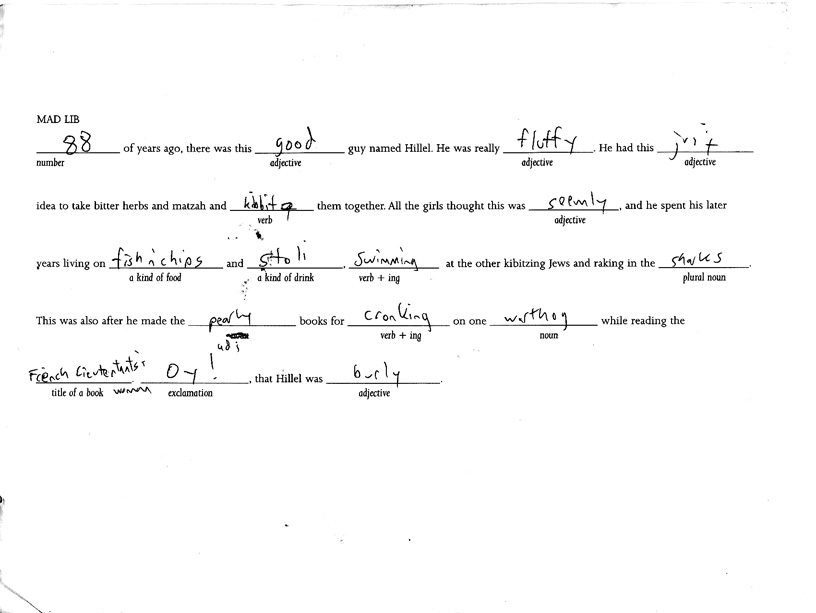 MAD LIB
88 of years ago, there was this good guy named Hillel. He was really fluffy. He had this
number adjective adjective adjective
idea to take bitter herbs and matzah and them together. All the girls thought this was seemly, and he spent his later
verb adjective
years living on fish n chips and stoli, swimming at the other kibitzing Jews and raking in the sharks.
a kind of food a kind of drink verb + ing plural noun
This was also after he made the pearly books for cronking on one warthog while reading the
adj verb + ing noun
French Lieutentants's Oy!, that Hillel was burly.
title of a book woman exclamation adjective